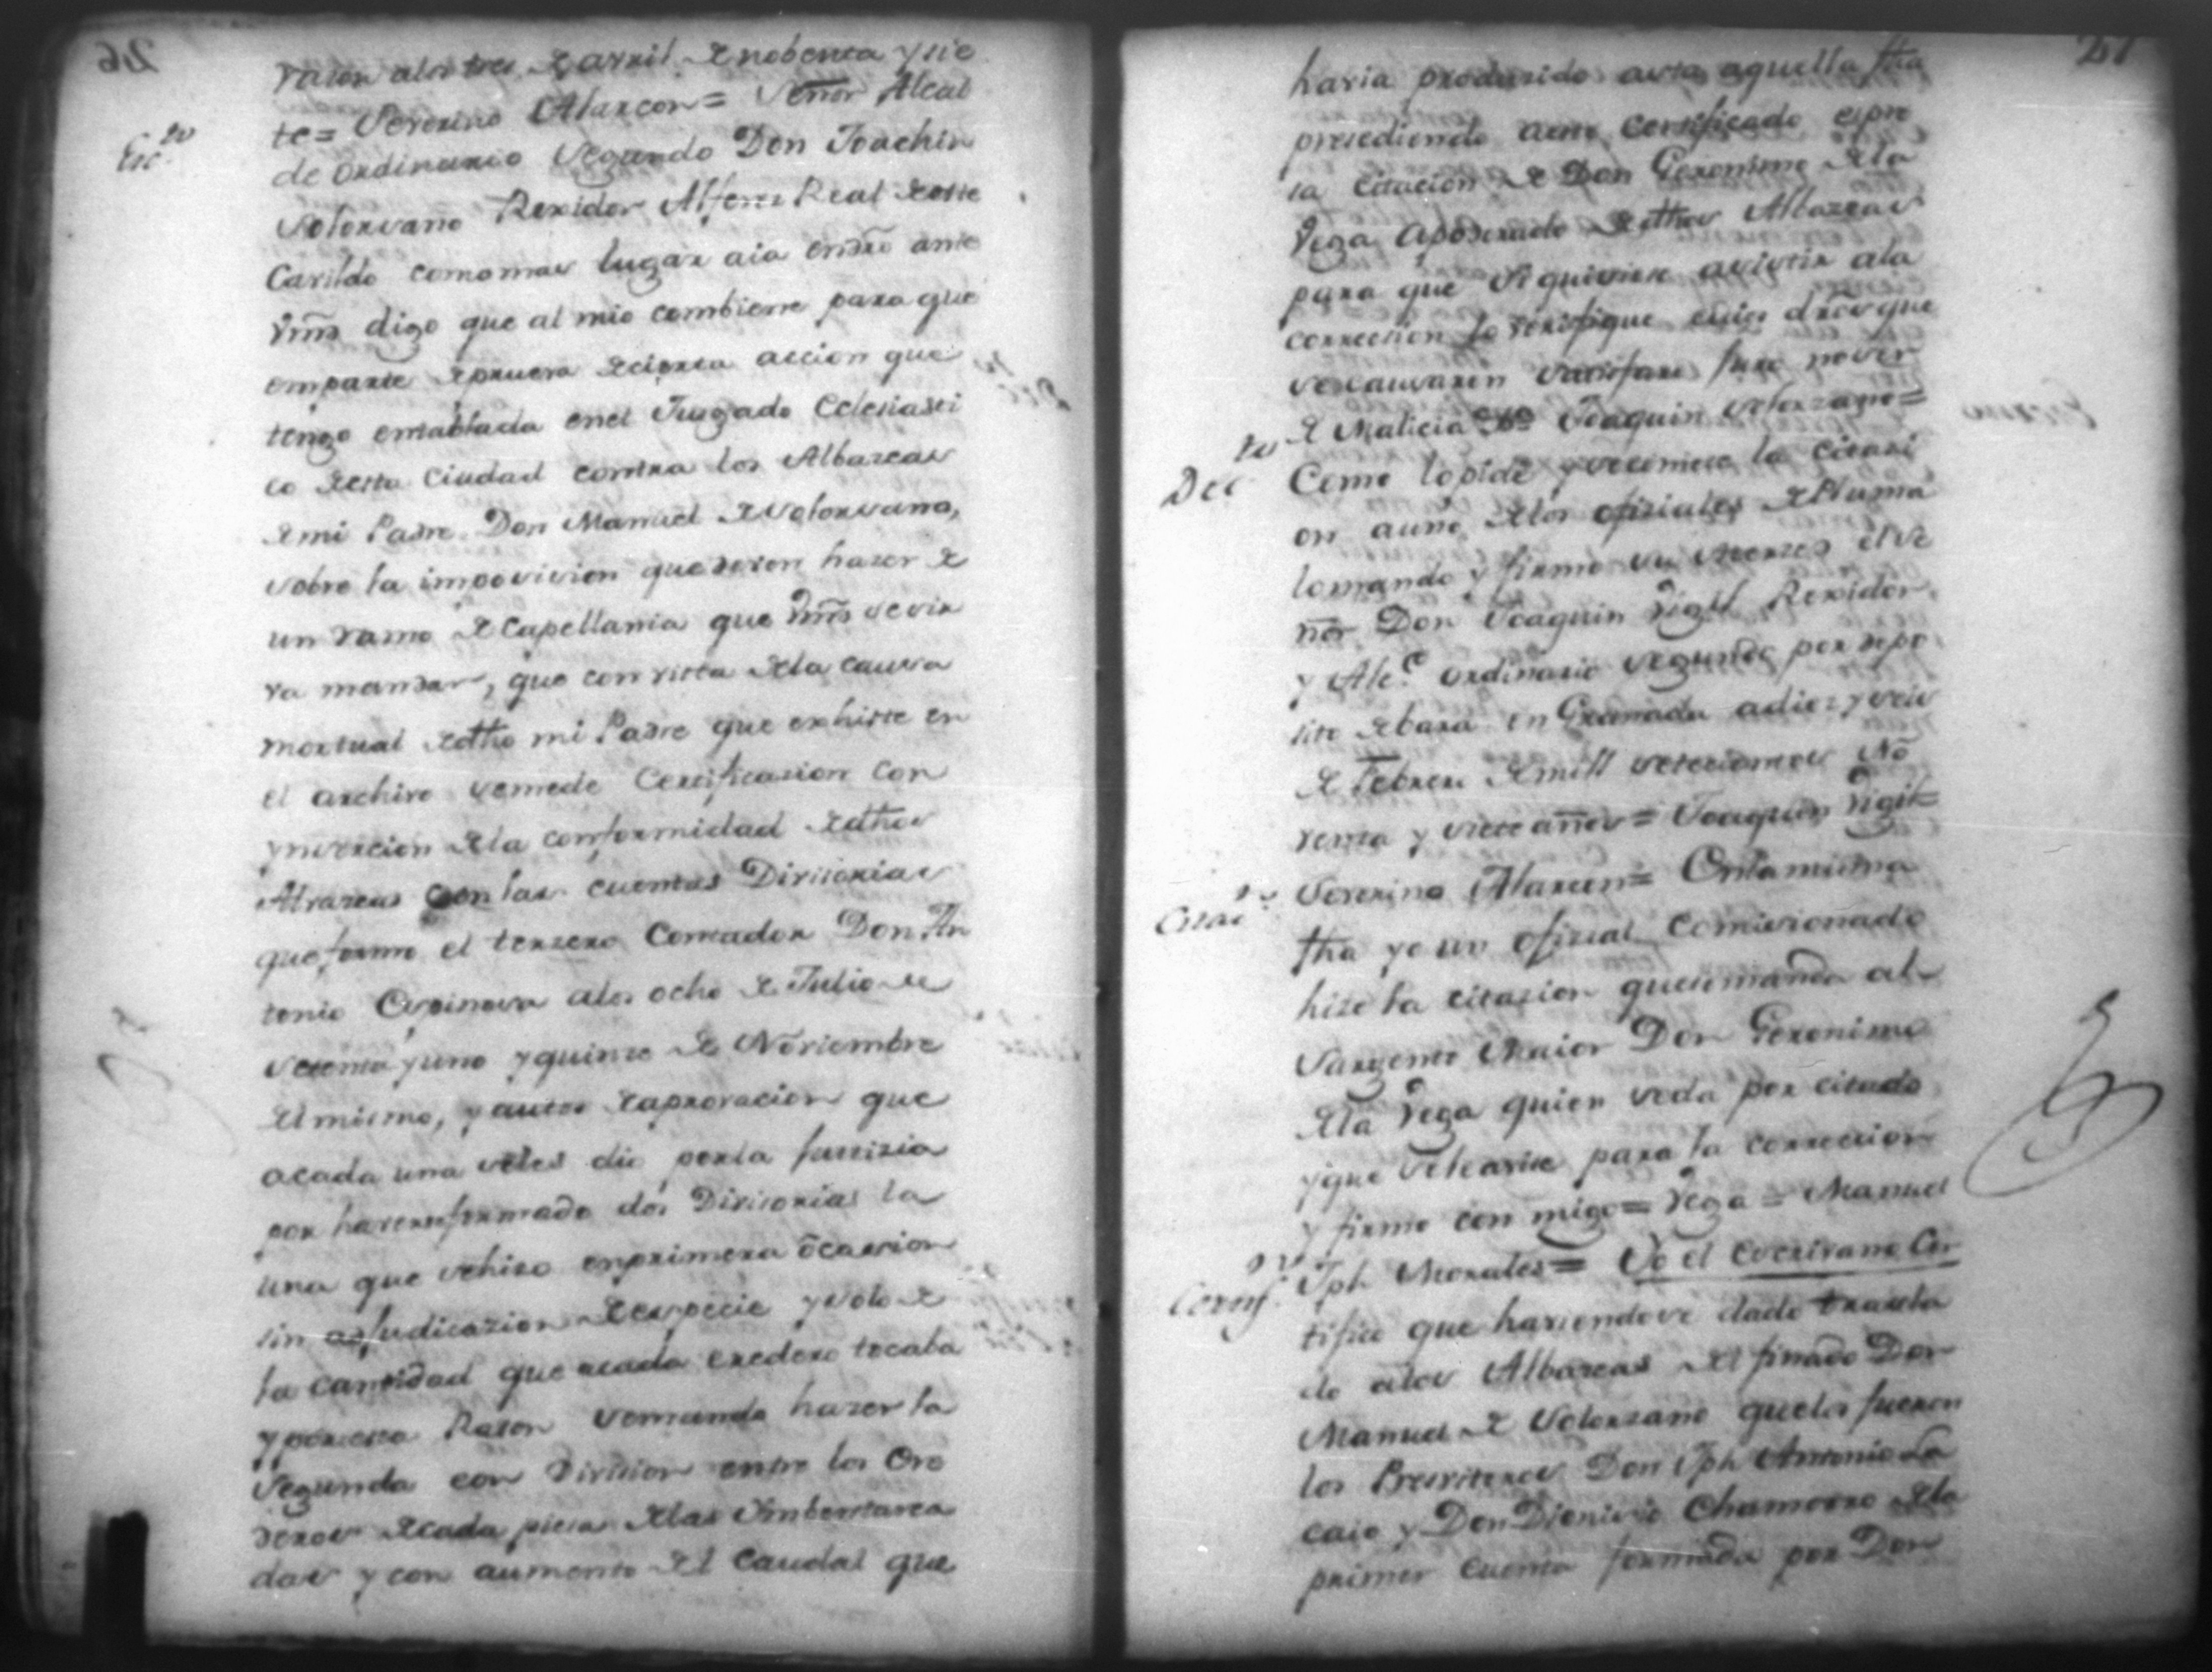 rason alos tres de avril de nobenta y sie
te = Severino Alarcon = Señor Alcal
Esc.to
de ordinario Segundo Don Joachin
Solorsano Rexidor Alferes Real de este
Cavildo como mas lugar aia en dro ante
Vms digo que al mio combiene para que
em parte de prueva de cierta accion que
tengo entablada en el Jusgado Eclesiasti
co de esta Ciudad contra los Albaseas
de mi Padre Don Manuel de Solorsano,
sobre la imposision que deven haser de
un ramo de Capellania que Vms se sir
va mandar, que con vista de la causa
mortual de dtho mi Padre que exhiste en
el archivo se me de Certificasion con
ynsercion de la conformidad de dthos
Alvaseas con las cuentas Divisorias
que formo el tersero Contador Don An
tonio Espinosa alos ocho de Julio de
setenta y uno y quinse de Noviembre
del mismo, y autos de aprovacion que
acada una seles dio por la Justizia
por haver se formado dos Divisorias la
una que se hiso en primera ocassion
sin adjudicazion de especie y solo de
la cantidad que acada eredero tocaba
y por esta Rason se mando haser la
Segunda con Division entre los Ere
deros de cada piesa de las Imbentarea
das y con aumento del Caudal que
27
havia produsido asta aquella ftha
presediendo a este Certificado espre
sa Citacion de Don Geronimo de la
Vega Apoderado de dthos Albaseas
para que si quisiere asistir ala
correccion lo verifique cuios dros que
se causaren satisfare juro no ser
de Malicia Joaquin Solorzano =
Dec.to
Como lo pide y se comete la Citasi
on auno de los ofisiales de Pluma
lo mando y firmo su Merzed el Se
ñor Don Joaquin Vigil Rexidor
y Alc.e ordinario Segundo por depo
sito de bara en Granada a dies y seis
de Febrero de mill setecientos No
venta y siete años = Joaquin Vigil =
Severino Alarcon = En la misma
Citaci.n
ftha yo un ofizial Comisionado
hise la citasion que se manda al
Sargento Maior Don Geronimo
de la Vega quien se da por citado
y que se le avise para la correccion
y firmo con migo = Vega = Manuel
Jph Morales = Yo el Escrivano Cer
Certif.n
tifico que haviendose dado trasla
do alos Albaseas del finado Don
Manuel de Solorzano que lo fueron
los Presviteros Don Jph Antonio La
caio y Don Dionisio Chamorro de la
primer Cuenta formada por Don